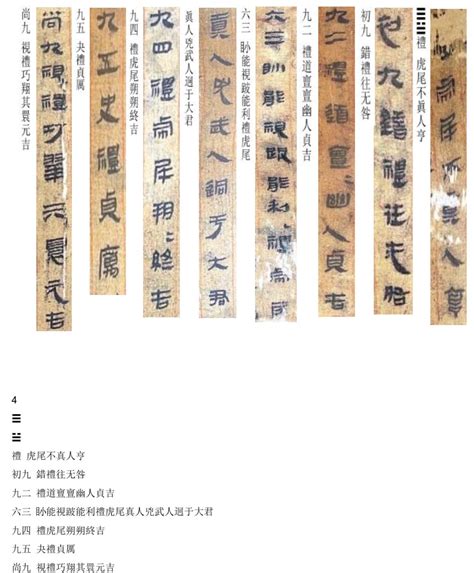 ䷉禮 虎尾不真人亨
初九 錯禮往无咎
九二 禮道亶亶幽人貞吉
六三 眇能視跛能利禮虎尾
真人兇武人迵于大君
九四 禮虎尾朔朔終吉
九五 夬禮貞厲
尚九 視禮巧翔其睘元吉
4
☰
☱
禮 虎尾不真人亨
初九 錯禮往无咎
九二 禮道亶亶幽人貞吉
六三 眇能視跛能利禮虎尾真人兇武人迵于大君
九四 禮虎尾朔朔終吉
九五 夬禮貞厲
尚九 視禮巧翔其睘元吉